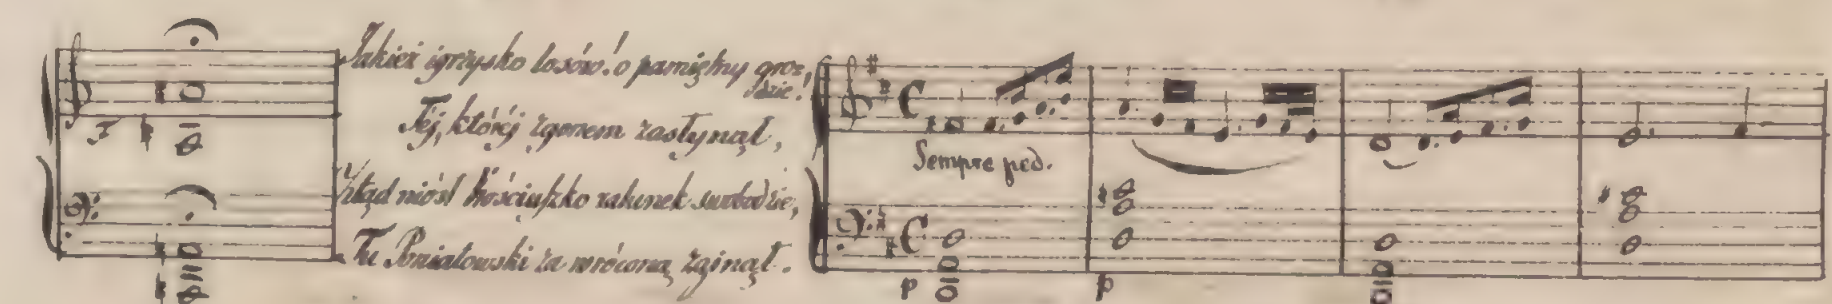 Jakież igrzysko losów! o pamiętny grodzie!
Tej, którój zgonem zasłynął,
Zkąd niósł Kościuszko ratunek swobodzie,
Tu Poniatowski za wróconą zginął.
F
Sempre ped.
p p